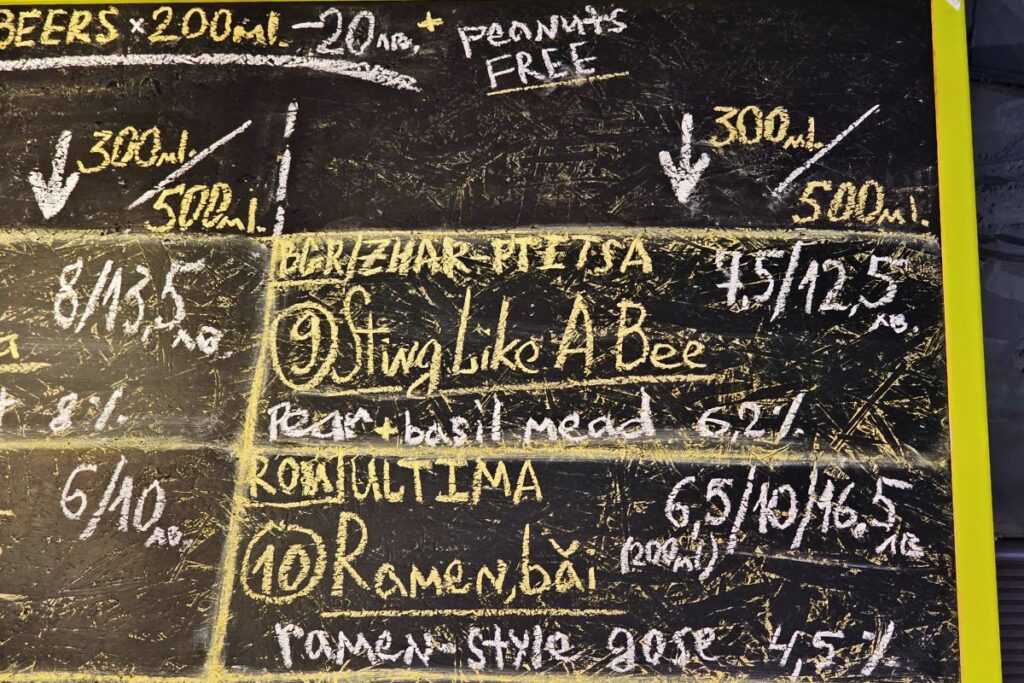 BEERS × 200ml. - 20 лв. + peanuts
FREE
300ml. / 500ml.
300ml. / 500ml.
8/13,5 лв.
8%
6/10 лв.
BGR/ZHAR-PTETSA 7,5/12,5 лв.
9 Sting Like A Bee
Pear + basil mead 6,2%
ROM/ULTIMA 6,5/10/16.5 лв
(200ml)
10 Ramen, băi
ramen-style gose 4,5%